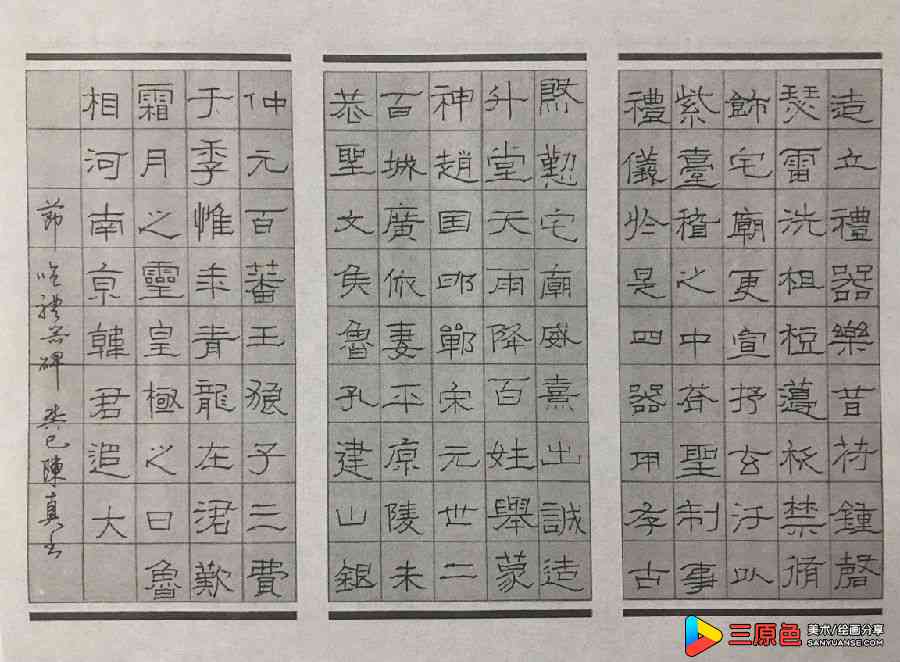 造立禮器樂音苻鍾磬
瑟雷洗柤梪籩柉禁脩
飾宅廟更宣抒玄汙以
紫臺稽之中合聖制事
禮儀於是四器用存古
懃宅廟威熹出誠造
升堂天雨降百姓舉蒙
神趙国邯鄲宋元世二
百城廣依妻平原陵朱
恭聖文矦魯孔建山
仲元百蕃王狼子二費
于季惟年青龍在涒歎
霜月之靈皇極之日魯
相河南京韓君追大
節临禮器碑 癸巳陳真書
三原色 美术/绘画分享
SANYUANSE.COM